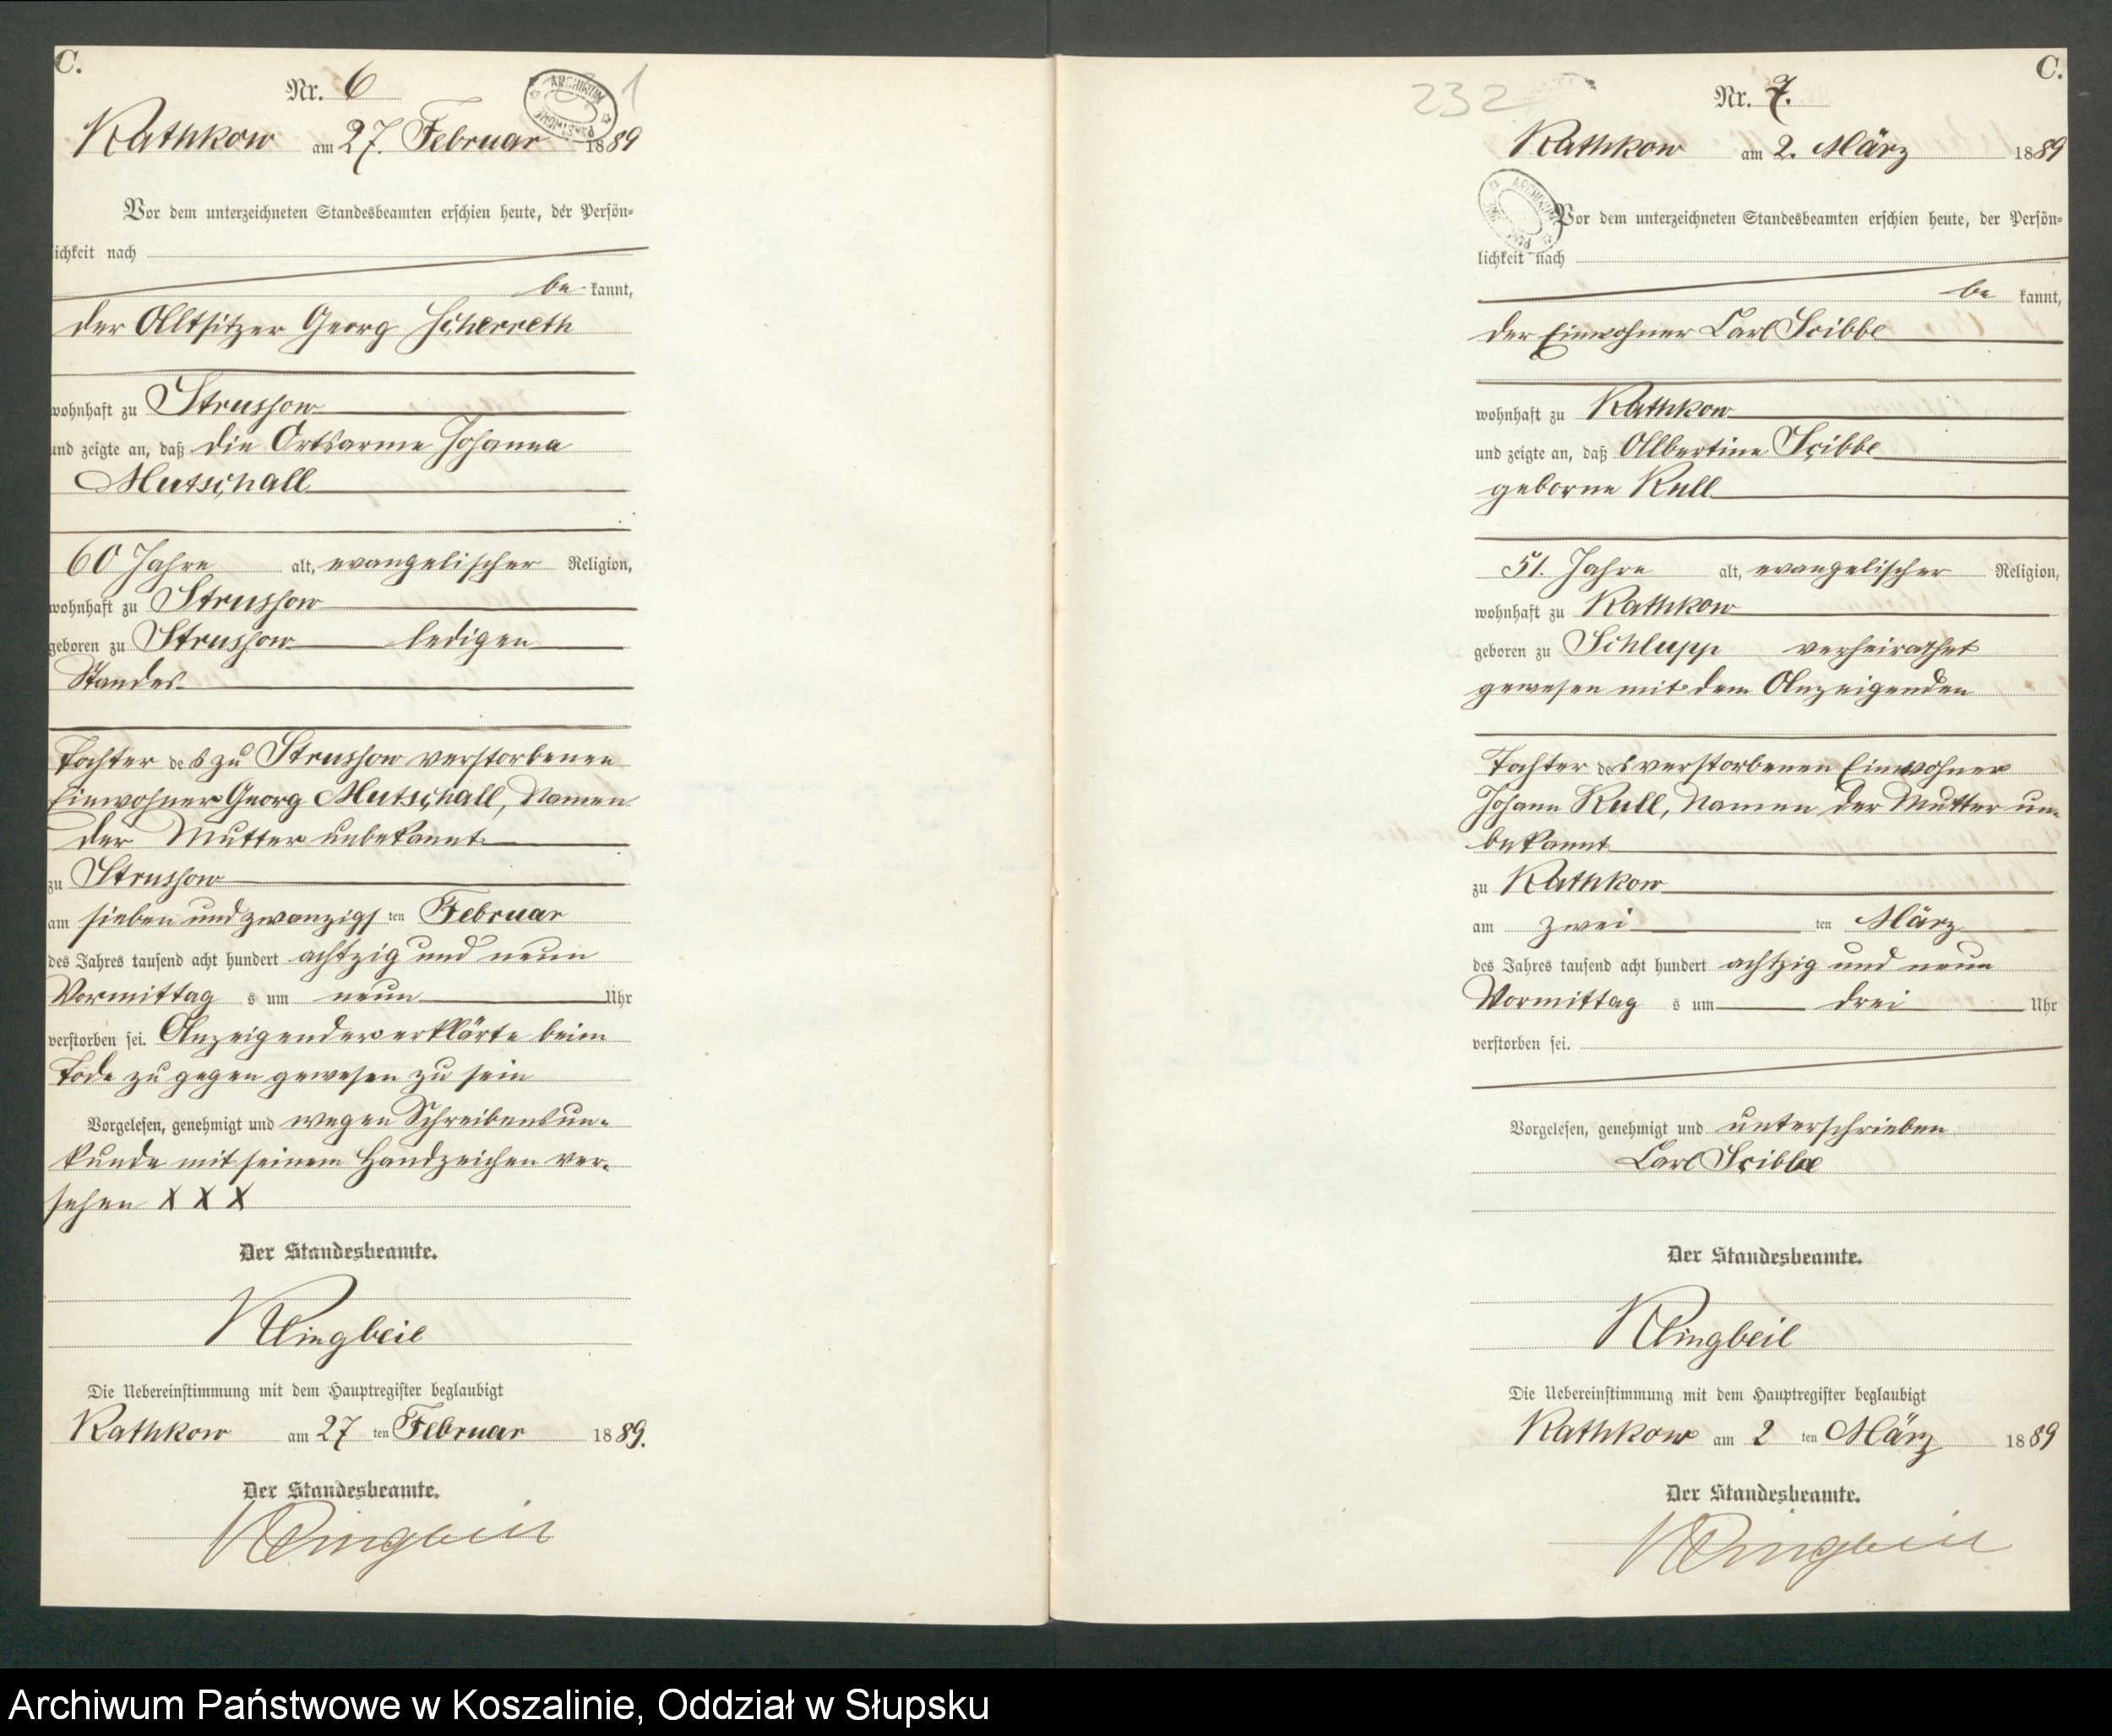 C.
Nr. 6
1
ARCHIWUM
Rathkow am 27. Februar 1889
Vor dem unterzeichneten Standesbeamten erschien heute, der Persön-
lichkeit nach
be kannt,
der Altsitzer Georg Scherreth
wohnhaft zu Strussow
und zeigte an, daß die Ortsarme Johanna
Mutschall
60 Jahre alt, evangelischer Religion,
wohnhaft zu Strussow
geboren zu Strussow ledigen
Standes
Tochter des zu Strussow verstorbenen
Einwohner Georg Mutschall, Namen
der Mutter unbekannt
zu Strussow
am sieben und zwanzigs ten Februar
des Jahres tausend acht hundert achtzig und neun
Vormittag s um neun Uhr
verstorben sei. Anzeigender erklärte beim
Tode zu gegen gewesen zu sein
Vorgelesen, genehmigt und wegen Schreibensun-
kunde mit seinem Handzeichen ver-
sehen X X X
Der Standesbeamte.
Klingbeil
Die Uebereinstimmung mit dem Hauptregister beglaubigt
Rathkow am 27 ten Februar 1889.
Der Standesbeamte.
Klingbeil
C.
232
Nr. 7.
Rathkow am 2. März 1889
ARCHIWUM
Vor dem unterzeichneten Standesbeamten erschien heute, der Persön-
lichkeit nach
be kannt,
der Einwohner Carl Scibbe
wohnhaft zu Rathkow
und zeigte an, daß Albertine Scibbe
geborne Kull
51. Jahre alt, evangelischer Religion,
wohnhaft zu Rathkow
geboren zu Schlupp verheirathet
gewesen mit dem Anzeigenden
Tochter des verstorbenen Einwohner
Johann Kull, Namen der Mutter un-
bekannt
zu Rathkow
am zwei ten März
des Jahres tausend acht hundert achtzig und neun
Vormittag s um drei Uhr
verstorben sei.
Vorgelesen, genehmigt und unterschrieben
Carl Scibbe
Der Standesbeamte.
Klingbeil
Die Uebereinstimmung mit dem Hauptregister beglaubigt
Rathkow am 2 ten März 1889
Der Standesbeamte.
Klingbeil
Archiwum Państwowe w Koszalinie, Oddział w Słupsku